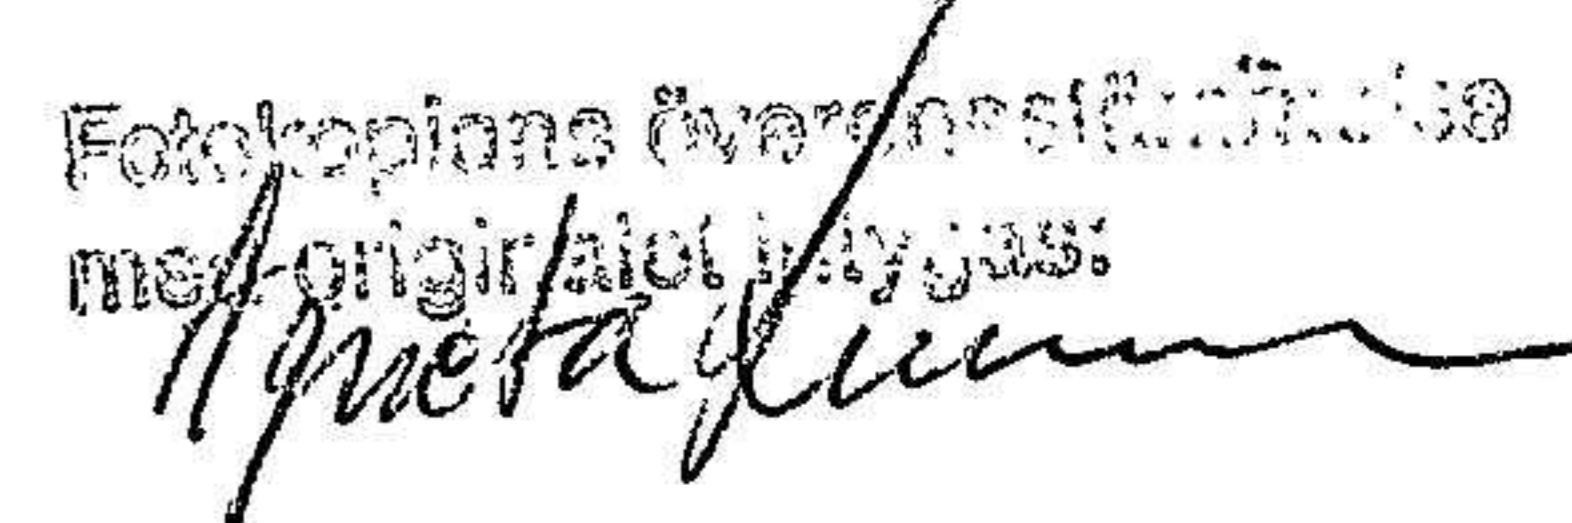 Fotokopians överensstämmelse
med originalet intygas:
Agneta